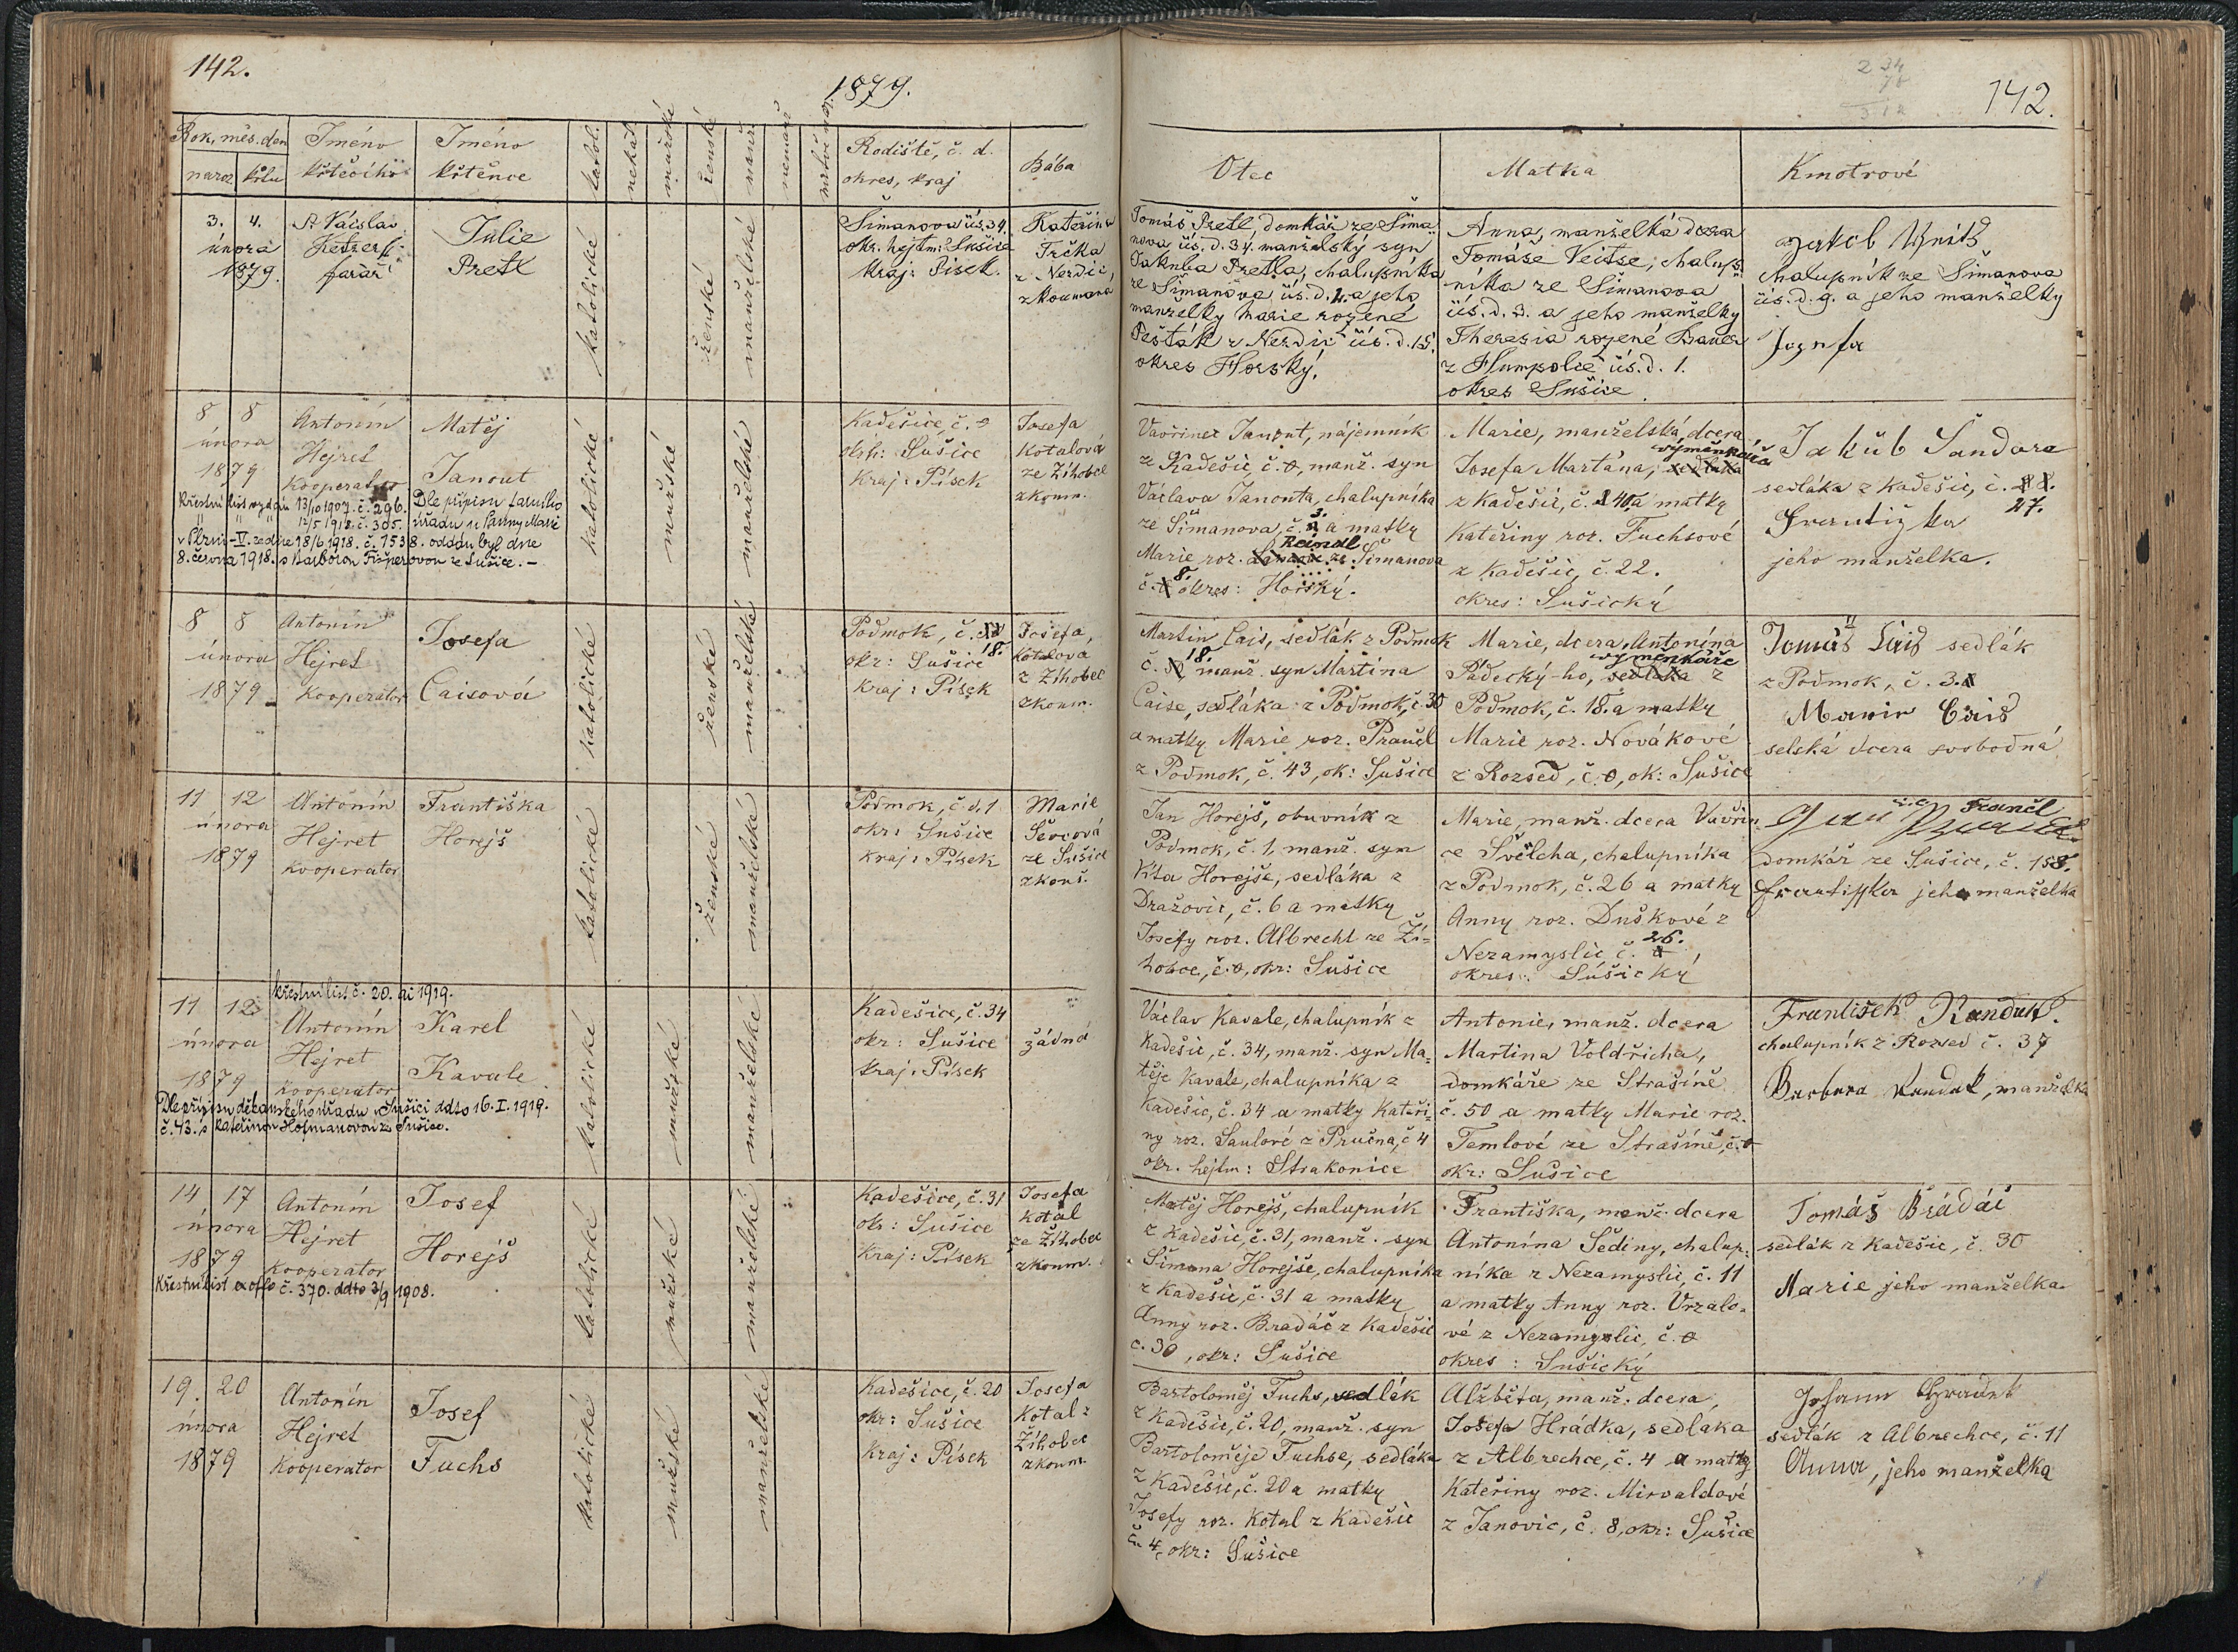 142.
1879.
Rok, měs. den
naroz křtu
Jméno
křtěcího
Jméno
křtěnce
katol.
nekat.
mužské
ženské
manž.
nemanž
Rodiště, č. d.
okres, kraj
Bába
3. 4.
února
1879.
P. Václav
farář
Julie
Pretl
katolické
ženské
manželské
Šimanova čís. 34.
okr. hejtm: Sušice
kraj: Písek.
Kateřina
Trčka
z Nerdic,
zkoumaná
8 8
února
1879
Antonín
Hejret
kooperator
Matěj
Janout
katolické
mužské
manželské
Kadešice, č. 0
okr: Sušice
Kraj: Písek
Josefa
Kotalová
ze Žihobec
zkoum.
Křestní list vydán 13/10 1907. č. 296.
12/5 1918. č. 305.
Dle přípisu farního
úřadu u Panny Marie
v Plzni-IV. ze dne 18/6 1918. č. 1538. oddán byl dne
8. června 1918. s Barborou Fišperovou ze Sušice. –
8 8
února
1879
Antonín
Hejret
kooperator
Josefa
Caisová
katolické
ženské
manželské
Podmok, č.
18.
okr: Sušice
Kraj: Písek
Josefa,
Kotalova
z Žihobec
zkoum.
11 12
února
1879
Antonín
Hejret
kooperator
Františka
Horejš
katolické
ženské
manželské
Podmok, č. d. 1
okr: Sušice
kraj: Písek
Marie
Ševcová
ze Sušice
zkouš.
křestní list č. 20. ai 1919.
11 12
února
1879
Antonín
Hejret
kooperator
Karel
Kavale
katolické
mužské
manželské
Kadešice, č. 34
okr: Sušice
kraj: Písek
žádná
Dle přípisu děkanského úřadu v Sušici ddto 16. I. 1919.
č. 43. s Kateřinou Hofmanovou ze Sušice.
14 17
února
1879
Antonín
Hejret
kooperator
Josef
Horejš
katolické
mužské
manželské
Kadešice, č. 31
okr: Sušice
Kraj: Písek
Josefa
Kotal
ze Žihobec
zkoum.
Křestní list ex offo č. 370. ddto 3/9 1908.
19. 20
února
1879
Antonín
Hejret
Kooperator
Josef
Fuchs
katolické
mužské
manželské
Kadešice, č. 20
okr: Sušice
Kraj: Písek
Josefa
Kotal z
Žihobec
zkoum.
142.
Otec
Matka
Kmotrové
Tomáš Pretl, domkář ze Šima-
nova čís. d. 34. manželský syn
Jakuba Pretla, chalupníka
ze Šimanova čís. d. 4. a jeho
manželky Marie rozené
Pešták z Nerdic čís. d. 15.
okres Horský.
Anna, manželká dcera
Tomáše Veitse, chalup-
níka ze Šimanova
čís. d. 3. a jeho manželky
Theresia rozené Bauer
z Humpolce čís. d. 1.
okres Sušice.
chalupník ze Šimanova
čís. d. 9. a jeho manželky
Josefa
Vavřinec Janout, nájemník
z Kadešic, č. 0, manž. syn
Václava Janouta, chalupníka
ze Šimanova, č. 3. a matky
Reindl
Marie roz. Šimanova
č. 8. okres: Horský.
Marie, manželská dcera
výměnkáře
Josefa Martana, sedláka
z Kadešic, č. 40, a matky
Kateřiny roz. Fuchsové
z Kadešic, č. 22.
okres: Sušický
Jakub Šandara
sedláka z Kadešic, č.
27.
Františka
jeho manželka.
Martin Cais, sedlák z Podmok
č. 18. manž. syn Martina
Caise, sedláka z Podmok, č. 30
a matky Marie roz. Prančl
z Podmok, č. 43, ok: Sušice
Marie, dcera Antonína
výměnkáře
Pádecký-ho, sedláka z
Podmok, č. 18. a matky
Marie roz. Novákové
z Rozsed, č. 0, ok: Sušice
Tomáš Cais sedlák
z Podmok, č. 3.
Cais
selská dcera svobodná
Jan Horejš, obuvník z
Podmok, č. 1, manž. syn
Víta Horejše, sedláka z
Dražovic, č. 6 a matky
Josefy roz. Albrecht ze Ži-
hobce, č. 0, okr: Sušice
Marie, manž. dcera Vavřin-
ce Švelcha, chalupníka
z Podmok, č. 26 a matky
Anny roz. Duškové z
Nezamyslic č. 26.
okres: Sušický
Prančl
domkář ze Sušice, č. 158.
Františka jeho manželka
Václav Kavale, chalupník z
Kadešic, č. 34, manž. syn Ma-
těje Kavale, chalupníka z
Kadešic, č. 34 a matky Kateři-
ny roz. Saulové z Pručna, č 4
okr. hejtm: Strakonice
Antonie, manž. dcera
Martina Voldřicha,
domkáře ze Strašíně
č. 50 a matky Marie roz.
Temlové ze Strašíně, č. 0
okr: Sušice
František Randák.
chalupník z Rozsed č. 37
Barbara Randak, manželka
Matěj Horejš, chalupník
z Kadešic, č. 31, manž. syn
Šimona Horejše, chalupníka
z Kadešic, č. 31 a matky
Anny roz. Bradáč z Kadešic
č. 30, okr: Sušice
Františka, manž. dcera
Antonína Šediny, chalup-
níka z Nezamyslic, č. 11
a matky Anny roz. Vrzalo-
vé z Nezamyslic, č. 0
okres: Sušický
Tomáš Brádáč
sedlák z Kadešic, č. 30
Marie jeho manželka
Bartoloměj Fuchs, sedlák
z Kadešic, č. 20, manž. syn
Bartoloměje Fuchse, sedláka
z Kadešic, č. 20 a matky
Josefy roz. Kotal z Kadešic
č. 4, okr: Sušice
Alžběta, manž. dcera,
Josefa Hrádka, sedlaka
z Albrechce, č. 4 a matky
Kateřiny roz. Mirvaldové
z Janovic, č. 8, okr: Sušice
Johann Hradek
sedlák z Albrechce, č. 11
Anna, jeho manželka